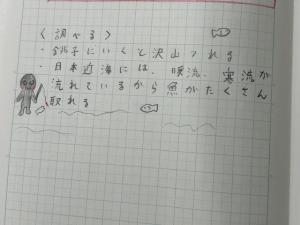 <調べる>
・銚子にいくと沢山つれる
・日本近海には、暖流、寒流が
流れているから魚がたくさん
取れる